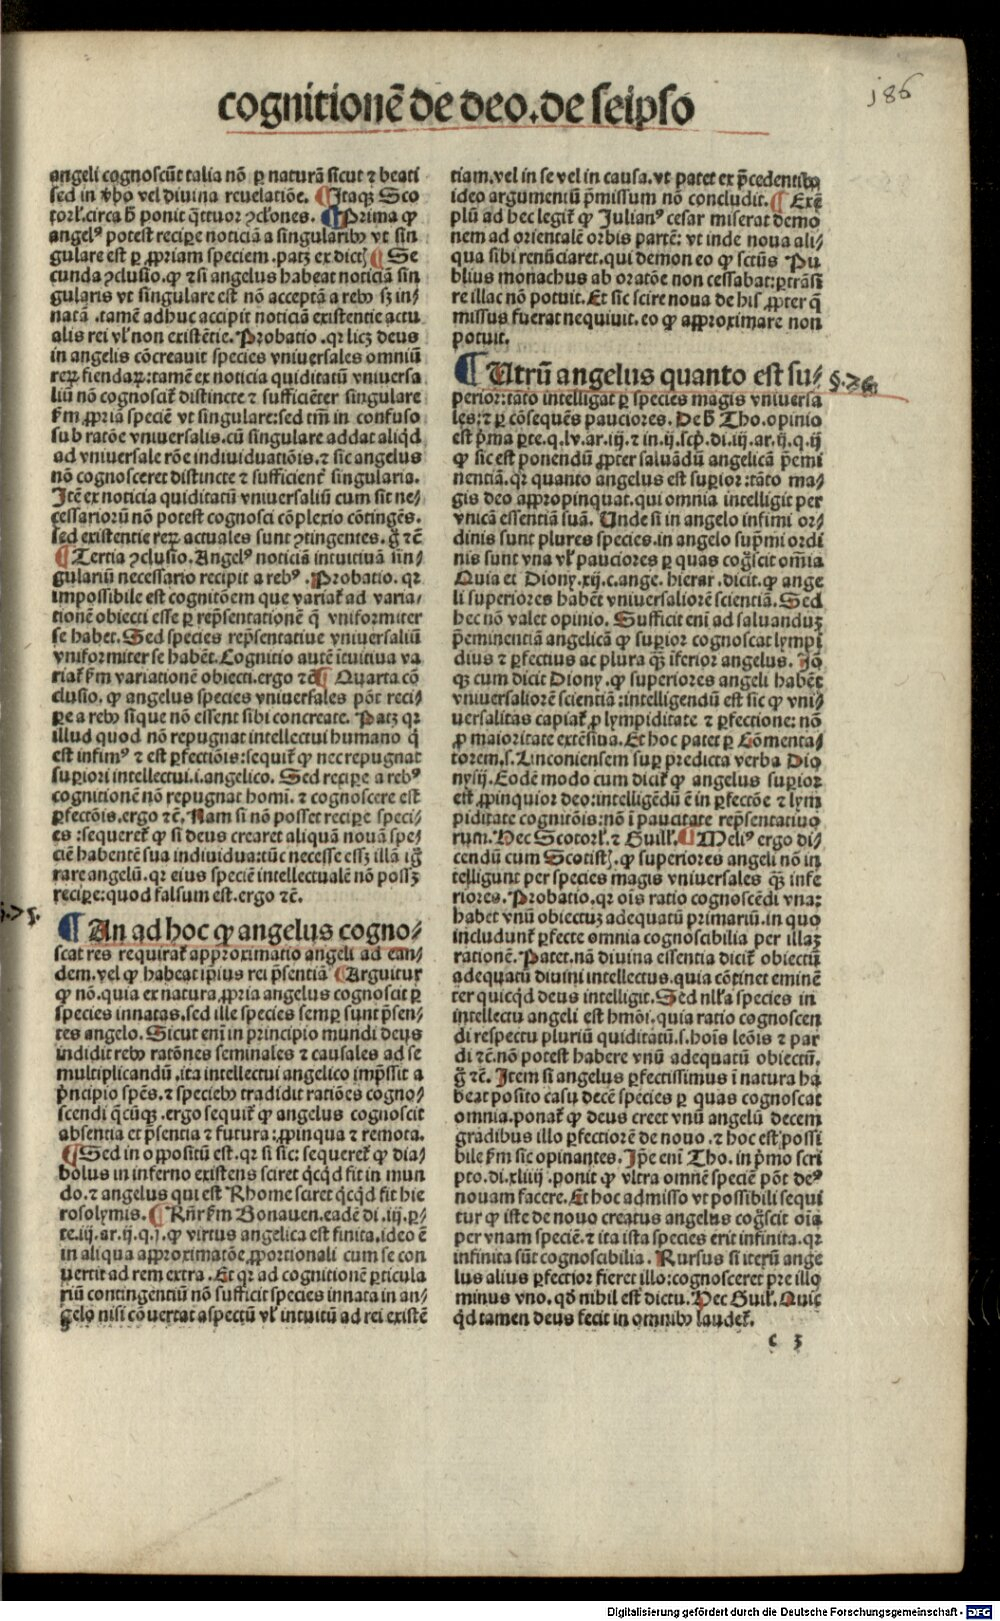 cognitionē de deo.de seipso
186
angeli cognoscūt talia nō ꝑ naturā sicut ⁊ beati
sed in v̓bo vel diuina reuelatiōe. ¶Itaqꝫ Sco
torꝉ.circa h̓ ponit q̄ttuor ꝯclōnes. ¶Prima ꝙ
angelꝰ potest recipe̱re noticiā a singularibꝰ vt sin
gulare est ꝑ ꝓpriam speciem. patꝫ ex dict. ¶Se
cunda ꝯclusio. ꝙ ⁊ si angelus habeat noticiā sin
gularis vt singulare est nō acceptā a rebꝰ sꝫ in/
natā .tamē adhuc accipit noticiā existentie actu
alis rei vꝉ non existētie. Probatio .qꝛ licꝫ deus
in angelis cōcreauit species vniuersales omniū
reꝝ fiendaꝝ:tamē ex noticia quiditatū vniuersa
liū nō cognoscit̄ distincte ⁊ sufficiēter singulare
ẜm ꝓpriā speciē vt singulare:sed tm̄ in confuso
sub ratōe vniuersalis.cū singulare addat aliqd̓
ad vniuersale rōe indiuiduatiōis.⁊ sic angelus
nō cognosceret distincte ⁊ sufficient̓ singularia.
Itē ex noticia quiditatū vniuersaliū cum sit ne/
cessarioꝝū nō potest cognosci cōplexio cōtingēs.
sed existentie reꝝ actuales sunt ꝯtingentes. g̊ ⁊c̄
¶Tertia ꝯclusio. Angelꝰ noticiā intuitiuā sin/
gulariū necessario recipit a rebꝰ . Probatio. qꝛ
impossibile est cognitōem que variat̄ ad varia/
tionē obiecti esse ꝑ repn̄sentationē q̄ vniformiter
se habet. Sed species repn̄sentatiue vniuersaliū
vniformiter se habēt. Cognitio autē ītuitiua va
riat̄ ẜm variationē obiecti.ergo ⁊c̄ ¶ Quarta cō
clusio. ꝙ angelus species vniuersales pōt reci/
pere a rebꝰ sique nō essent sibi concreate. Patꝫ qꝛ
illud quod nō repugnat intellectui humano q̄
est infimꝰ ⁊ est ꝑfectiōis:sequit̄ ꝙ nec repugnat
superiori intellectui.i.angelico. Sed recipere a rebꝰ
cognitionē nō repugnat homī. ⁊ cognoscere est
ꝑfectōis.ergo ⁊c̄. Nam si nō posset recipere speci/
es :sequeret̄ ꝙ si deus crearet aliquā nouā spe/
ciē habentē sua indiuidua:tūc necesse essꝫ illā ig̊
rare angelū.qꝛ eius speciē intellectualē nō possꝫ
recipere:quod falsum est.ergo ⁊c̄.
§.75.
¶ An ad hoc ꝙ angelus cogno/
scat res requirat̄ approximatio angeli ad ean/
dem.vel ꝙ habeat ip̄ius rei p̄sentiā ¶Arguitur
ꝙ nō.quia ex natura ꝓpria angelus cognoscit ꝑ
species innatas.sed ille species semper sunt p̄sen/
tes angelo. Sicut enī in principio mundi deus
indidit rebꝰ ratōnes seminales ⁊ causales ad se
multiplicandū .ita intellectui angelico imp̄ssit a
p̄ncipio sp̄es.⁊ speciebꝰ tradidit ratiōes cogno/
scendi q̄cūqꝫ .ergo sequit̄ ꝙ angelus cognoscit
absentia et p̄sentia ⁊ futura:ꝓpinqua ⁊ remota.
¶Sed in oppositū est.qꝛ si sic: sequeret̄ ꝙ dia/
bolus in inferno existens sciret qc̓qd̓ fit in mun
do.⁊ angelus qui est Rhome sciret qc̓qd̓ fit hie
rosolymis. ¶ Rn̄r ẜm Bonauen.eadē di .iij.ꝑ/
te.iij.ar.ij.q.j.ꝙ virtus angelica est finita.ideo ē
in aliqua approximatōe ꝓportionali cum se con
uertit ad rem extra . Et qꝛ ad cognitionē ꝑticula
riū contingentiū nō sufficit species innata in an/
gelo nisi cōuertat aspectū vꝉ intuitū ad rei existē
tiam.vel in se vel in causa.vt patet ex p̄cedentibꝰ
ideo argumentū p̄missum nō concludit. ¶ Exē
plū ad hec legit̄ ꝙ Julianꝰ cesar miserat demo
nem ad orientalē orbis partē: vt inde noua ali/
qua sibi renūciaret.qui demon eo ꝙ sctūs Pu
blius monachus ab oratōe non cessabat:ꝑtrāsi
re illac nō potuit. Et sic scire noua de his ꝓpter q̄
missus fuerat nequiuit. eo ꝙ approximare non
potuit.
¶ Utrū angelus quanto est su/
§.76.
perior:tāto intelligat ꝑ species magis vniuersa
les:⁊ ꝑ cōsequēs pauciores. De h̓ Tho.opinio
est p̄ma ꝑte.q.lv.ar.iij.⁊ in ij.scp̓.di.iij.ar.ij.q.ij
ꝙ sic est ponendū ꝓpter saluādū angelicā p̄emi
nentiā.qꝛ quanto angelus est superior:tāto ma/
gis deo appropinquat.qui omnia intelligit per
vnicā essentiā suā. Unde si in angelo infimi or/
dinis sunt plures species.in angelo sup̄mi ordi
nis sunt vna vꝉ pauciores ꝑ quas cog̊scit om̄ia
Quia et Diony.xij.c.ange. hierar .dicit.ꝙ ange
li superiores habēt vniuersaliorē scientiā. Sed
hec nō valet opinio. Sufficit enī ad saluanduꝫ
p̄eminentiā angelicā ꝙ superior cognoscat lympi
dius ⁊ ꝑfectius ac plura qꝫ īferior angelus. Iō
qꝫ cum dicit Diony.ꝙ superiores angeli habēt
vniuersaliorē scientiā:intelligendū est sic ꝙ vni/
uersalitas capiat̄ ꝓ lympiditate ⁊ ꝑfectione: nō
ꝓ maioritate extēsiua. Et hoc patet ꝑ Cōmenta/
torem.s.Linconiensem super predicta verba Dio
nysij. Eodē modo cum dicit̄ ꝙ angelus superior
est ꝓpinquior deo:intelligēdū ē in ꝑfectōe ⁊ lym
piditate cognitōis:nō ī paucitate repn̄sentatiuo
rum. Hec Scotorꝉ.⁊ Guilꝉ. ¶Meliꝰ ergo di/
cendū cum Scotist.ꝙ superiores angeli nō in
telligunt per species magis vniuersales qꝫ infe
riores. Probatio.qꝛ ois ratio cognoscēdi vna:
habet vnū obiectuꝫ adequatū primariū.in quo
includunt̄ ꝑfecte omnia cognoscibilia per illaꝫ
rationē. Patet.nā diuina essentia dicit̄ obiectū
adequatū diuini intellectus.quia cōtinet eminē
ter quicqd̓ deus intelligit. Sed nlꝉa species in
intellectu angeli est hmōi.quia ratio cognoscen
di respectu pluriū quiditatū.s.hoīs leōis ⁊ par
di ⁊c̄.nō potest habere vnū adequatū obiectū.
g̊ ⁊c̄. Item si angelus ꝑfectissimus ī natura ha
beat posito casu decē species ꝑ quas cognoscat
omnia.ponat̄ ꝙ deus creet vnū angelū decem
gradibus illo ꝑfectiorē de nouo .⁊ hoc est possi
bile ẜm sic opinantes. Ip̄e enī Tho.in p̄mo scri
pto.di.xliiij .ponit ꝙ vltra omnē speciē pōt deꝰ
nouam facere. Et hoc admisso vt possibili sequi
tur ꝙ iste de nouo creatus angelus cog̊scit oīa
per vnam speciē.⁊ ita ista species erit infinita.qꝛ
infinita sūt cognoscibilia . Rursus si iterū ange
lus alius ꝑfectior fieret illo:cognosceret pre illo
minus vno.qd̓ nihil est dictu. Hec Guilꝉ. Quic
qd̓ tamen deus fecit in omnibꝰ laudet̄.
c 3
Digitalisierung gefördert durch die Deutsche Forschungsgemeinschaft - DFG